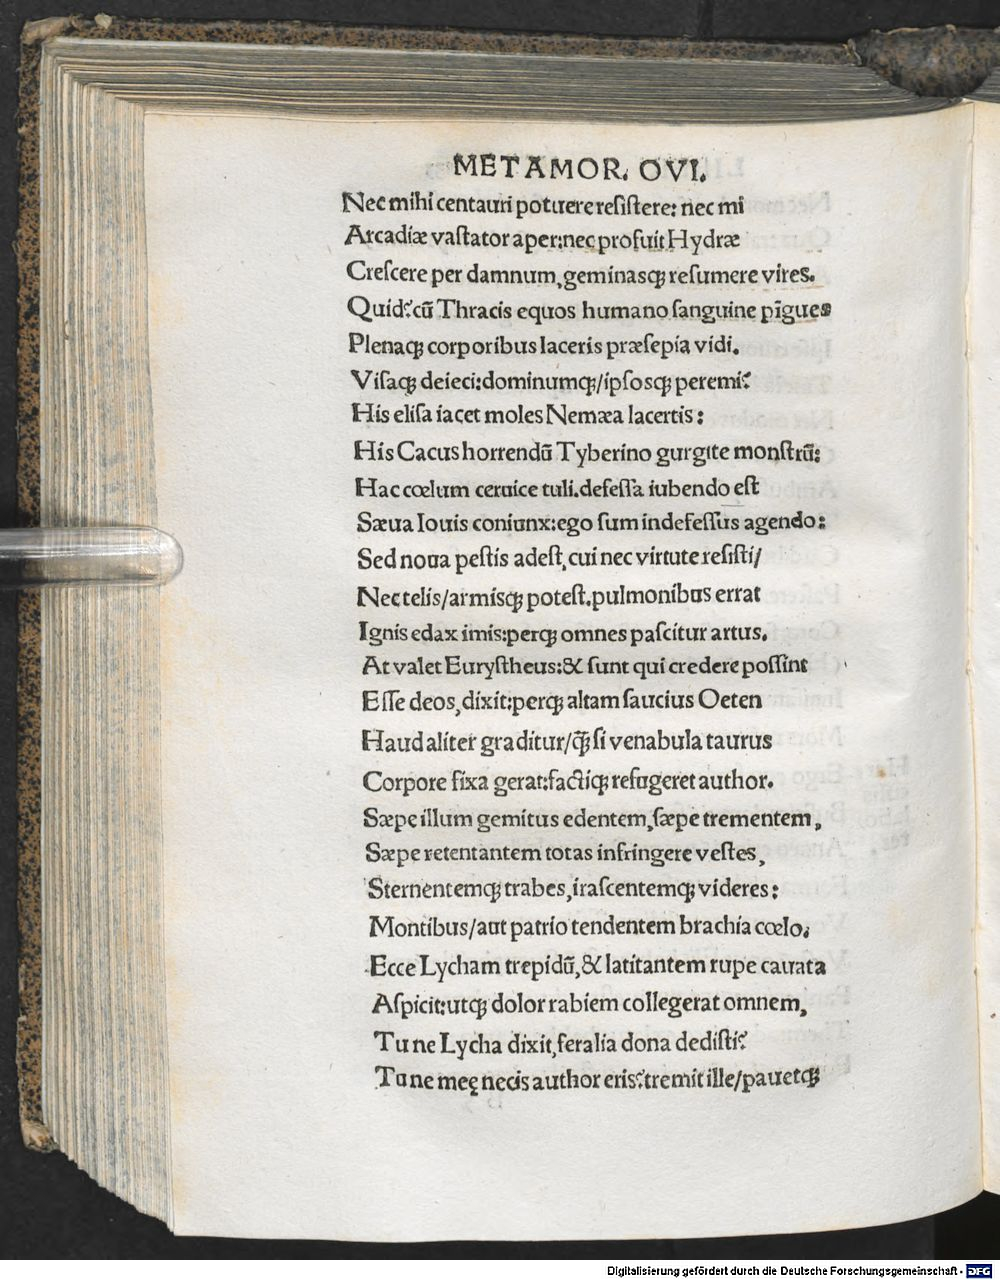 METAMOR. OVI.
Nec mihi centauri potuere resistere: nec mi
Arcadiæ vastator aper: nec profuit Hydræ
Crescere per damnum, geminasqꝫ resumere vires.
Quid? cū Thracis equos humano sanguine pīgues
Plenaqꝫ corporibus laceris præsepia vidi.
Visaqꝫ deieci: dominumqꝫ/ipsosqꝫ peremi?
His elisa iacet moles Nemæa lacertis:
His Cacus horrendū Tyberino gurgite monstrū:
Hac cœlum ceruice tuli. defessa iubendo est
Sæua Iouis coniunx: ego sum indefessus agendo:
Sed noua pestis adest, cui nec virtute resisti/
Nec telis/armisqꝫ potest. pulmonibus errat
Ignis edax imis: perqꝫ omnes pascitur artus.
At valet Eurystheus: & sunt qui credere possint
Esse deos, dixit: perqꝫ altam saucius Oeten
Haud aliter graditur/q̄ꝫ si venabula taurus
Corpore fixa gerat: factiqꝫ refugeret author.
Sæpe illum gemitus edentem, sæpe trementem,
Sæpe retentantem totas infringere vestes,
Sternentemqꝫ trabes, irascentemqꝫ videres:
Montibus/aut patrio tendentem brachia cœlo.
Ecce Lycham trepidū, & latitantem rupe cauata
Aspicit: utqꝫ dolor rabiem collegerat omnem,
Tu ne Lycha dixit, feralia dona dedisti?
Tu ne meę necis author eris? tremit ille/pauetqꝫ
Digitalisierung gefördert durch die Deutsche Forschungsgemeinschaft - DFG